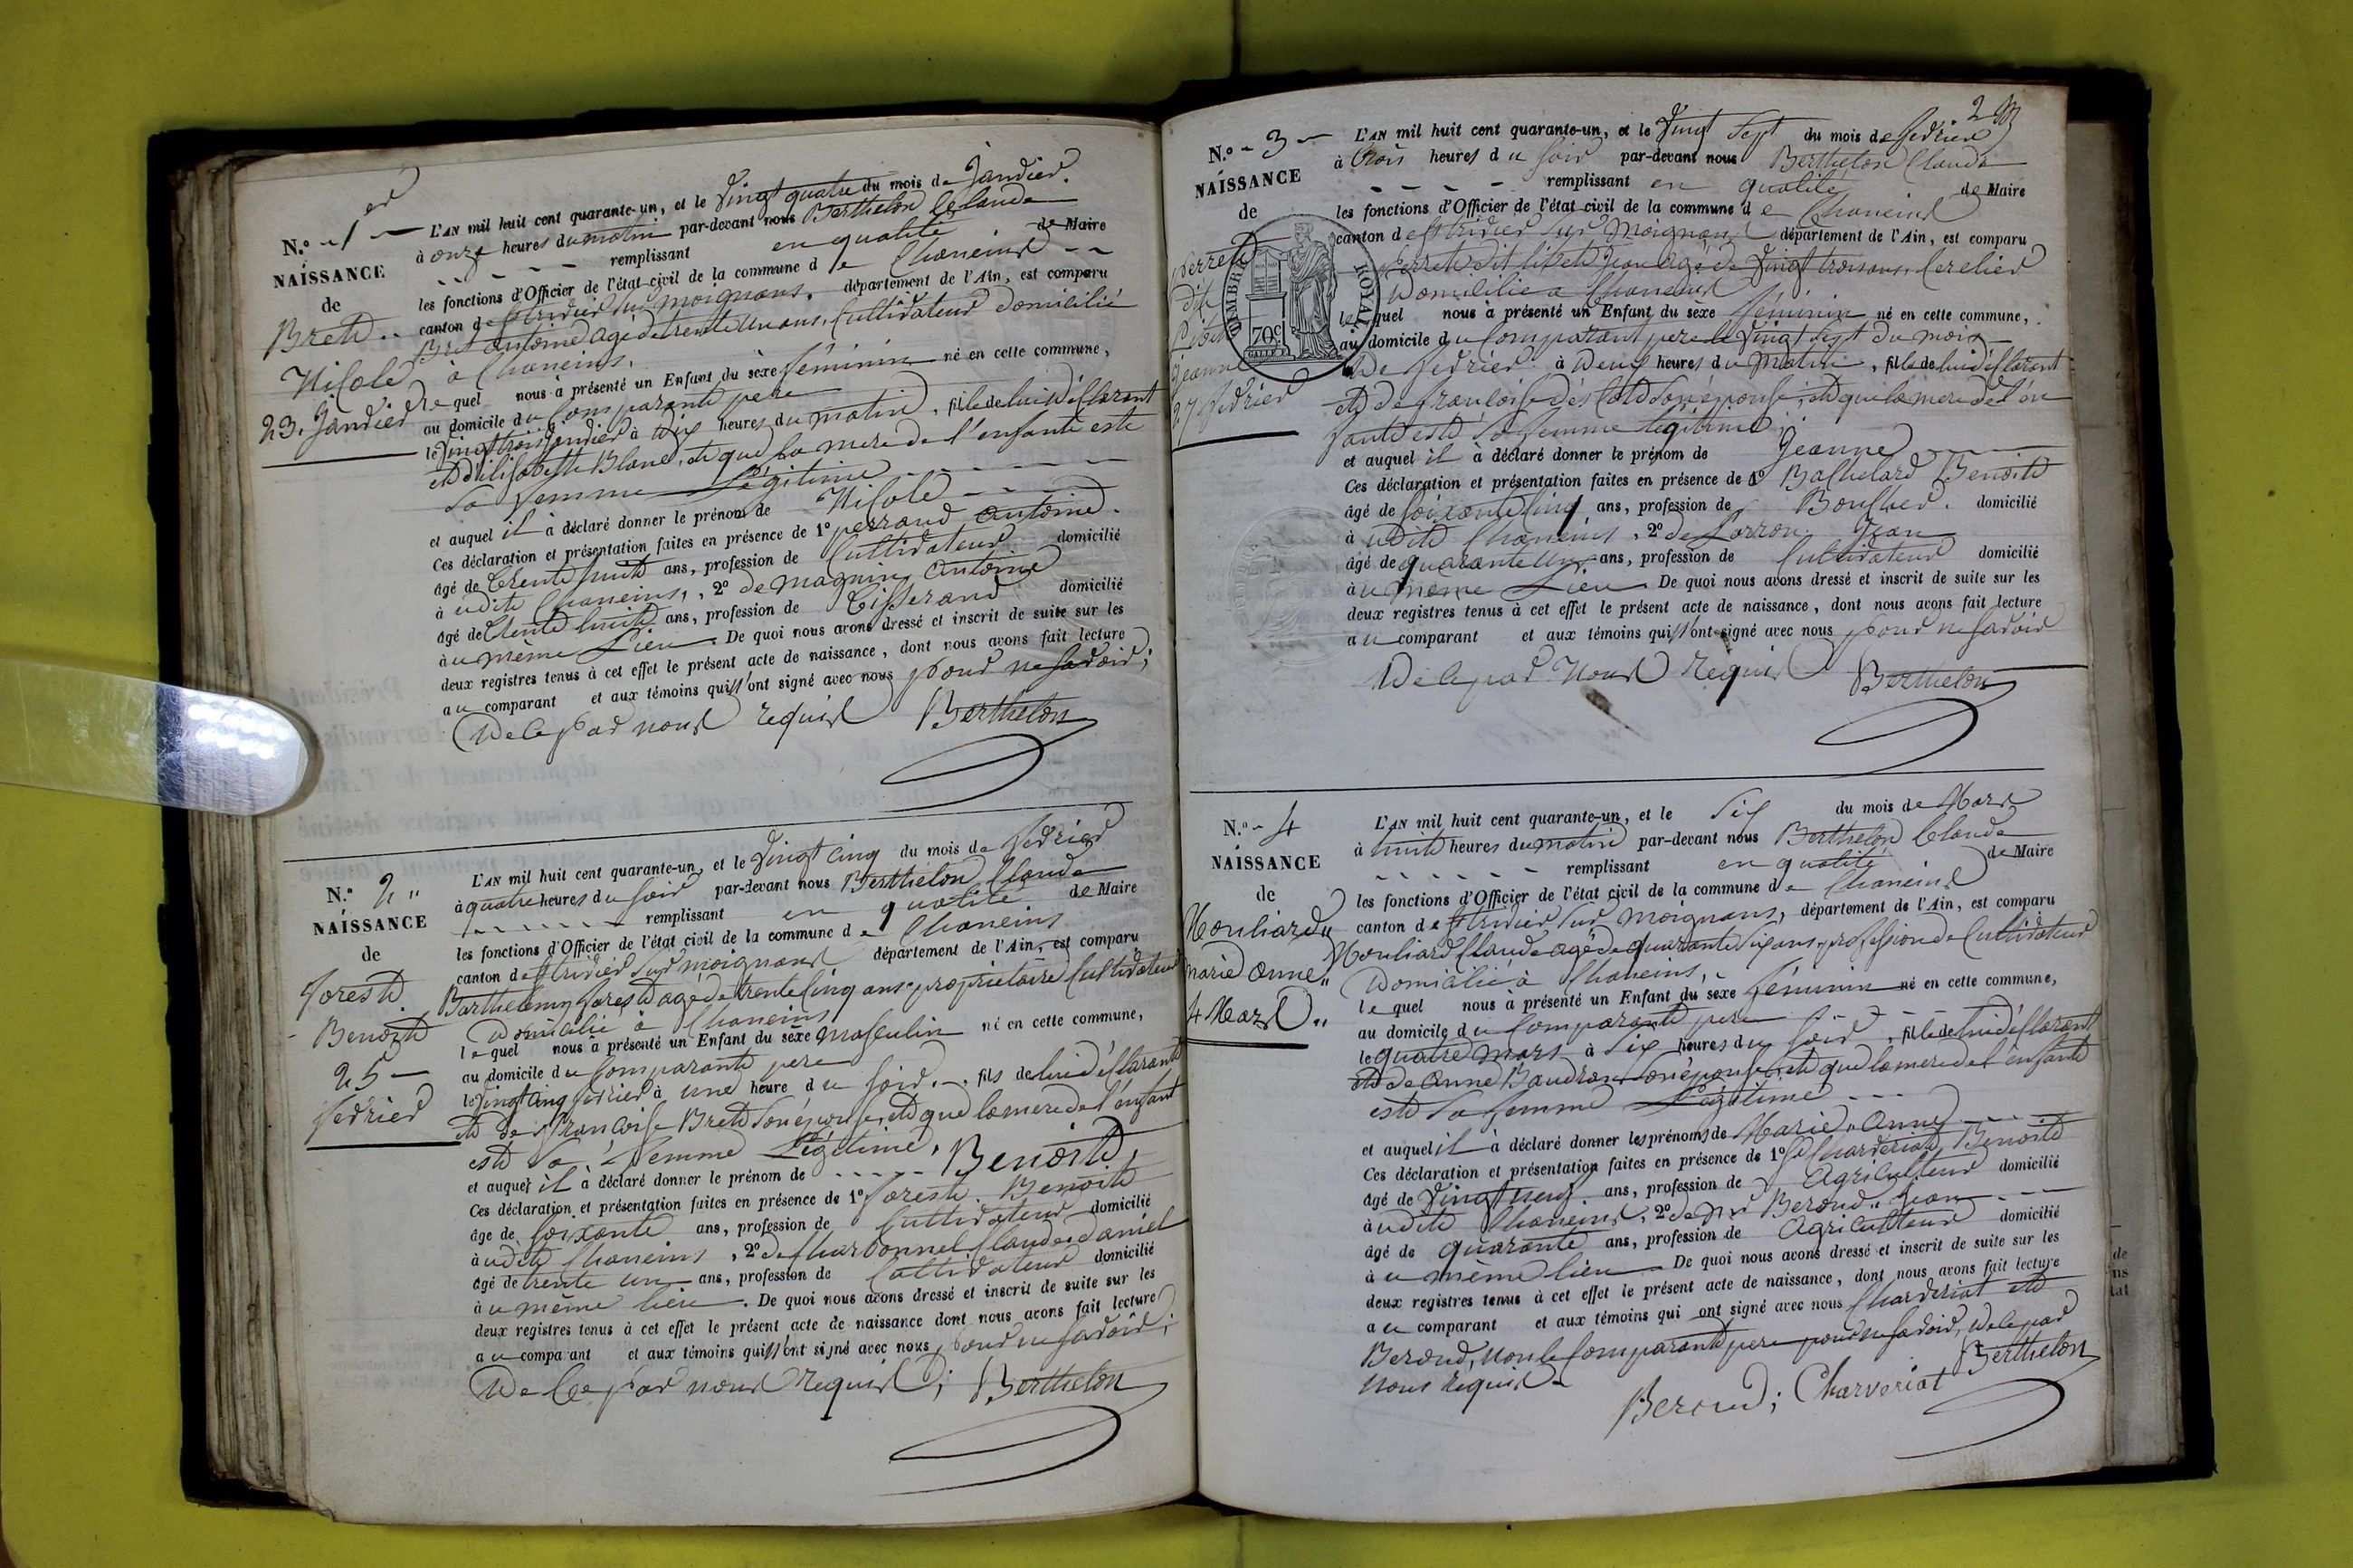 N.o 1er
NAISSANCE
de
Bret
Nicole
23. Janvier
L'AN mil huit cent quarante-un, et le Vingt quatre du mois de Janvier.
à onze heures du matin par-devant nous Berthelon Claude
remplissant en qualité de Maire
les fonctions d'Officier de l'état civil de la commune de Chaneins
canton de St trivier sur moignans. département de l'Ain, est comparu
Bret antoine agé de trente un ans, Cultivateur domicilié
à Chaneins.
lequel nous à présenté un Enfant du sèxe féminin né en cette commune,
au domicile du Comparant père
le Vingt trois Janvier à dix heures du matin, fille de lui déclarant
et d'élisabeth Blanc, et que la mere de l'enfant est
sa femme Légitime
et auquel il à déclaré donner le prénom de Nicole
Ces déclaration et présentation faites en présence de 1o perraud antoine.
âgé de trente huit ans, profession de Cultivateur domicilié
à udit Chaneins, 2o de magnin antoine
âgé de trente huit ans, profession de Tisserand domicilié
à u même Lieu. De quoi nous avons dressé et inscrit de suite sur les
deux registres tenus à cet effet le présent acte de naissance, dont nous avons fait lecture
au comparant et aux témoins qui n'ont signé avec nous pour ne savoir;
De ce par nous requis Berthelon
N.o 2
NAISSANCE
de
forest
Benoit
25
fevrier
L'AN mil huit cent quarante-un, et le Vingt cinq du mois de Fevrier
à quatre heures du soir par-devant nous Berthelon Claude
remplissant en qualité de Maire
les fonctions d'Officier de l'état civil de la commune de Chaneins
canton de St trivier sur moignans département de l'Ain, est comparu
Barthelemy forest agé de trente cinq ans proprietaire Cultivateur
Domicilié à Chaneins
lequel nous à présenté un Enfant du sèxe masculin né en cette commune,
au domicile du Comparant pere
le Vingt cinq fevrier à une heure du soir. fils de lui déclarant
et de Francoise Bret son épouse, et que la mere de l'enfant
est sa femme Légitime,
et auquel il à déclaré donner le prénom de Benoit,
Ces déclaration et présentation faites en présence de 1o forest Benoit
âge de soixante ans, profession de Cultivateur domicilié
à udit Chaneins, 2o de Charbonnel Claude daniel
âgé de trente un ans, profession de Cultivateur domicilié
à u même lieu. De quoi nous avons dressé et inscrit de suite sur les
deux registres tenus à cet effet le présent acte de naissance dont nous avons fait lecture
au comparant et aux témoins qui n'ont signé avec nous pour ne savoir;
De Ce par nous requis; Berthelon
2
N.o 3
NAISSANCE
de
perret
dit
Jeanne
27 fevrier
TIMBRE ROYAL
70c
L'AN mil huit cent quarante-un, et le Vingt Sept du mois de fevrier
à trois heures du soir par-devant nous Berthelon Claude
remplissant en qualité de Maire
les fonctions d'Officier de l'état civil de la commune de Chaneins
canton de St trivier sur moignans département de l'Ain, est comparu
perret dit Jean agé de Vingt trois ans,
Domicilié a Chaneins
lequel nous à présenté un Enfant du sèxe féminin né en cette commune,
au domicile du Comparant pere le Vingt Sept du mois
De fevrier à Deux heures du Matin, fille de lui déclarant
et de francoise son épouse, et que la mere de l'en
fant est sa femme légitime;
et auquel il à déclaré donner le prénom de Jeanne
Ces déclaration et présentation faites en présence de 1o Bachelard Benoit
âgé de soixante cinq ans, profession de Boucher. domicilié
à udit Chaneins, 2o de Lorron Jean
âgé de quarante un ans, profession de Cultivateur domicilié
à u même Lieu De quoi nous avons dressé et inscrit de suite sur les
deux registres tenus à cet effet le présent acte de naissance, dont nous avons fait lecture
au comparant et aux témoins qui n'ont signé avec nous pour ne savoir
De ce par Nous requis Berthelon
N.o 4
NAISSANCE
de
Mouliard
marie anne
4 Mars
L'AN mil huit cent quarante-un, et le Six du mois de Mars
à huit heures du matin par-devant nous Berthelon Claude
remplissant en qualité de Maire
les fonctions d'Officier de l'état civil de la commune de Chaneins
canton de St trivier sur moignans, département de l'Ain, est comparu
Mouliard Claude agé de quarante Six ans, profession de Cultivateur
Domicilié à Chaneins,
lequel nous à présenté un Enfant du sèxe féminin né en cette commune,
au domicile du Comparant pere
le quatre mars à Six heures du soir, fille de lui déclarant
et de anne Baudran son épouse, et que la mere de l'enfant
est sa femme Légitime
et auquel il à déclaré donner les prénoms de Marie Anne
Ces déclaration et présentation faites en présence de 1o Charveriat Benoit
âgé de Vingt neuf ans, profession de Agriculteur domicilié
à udit Chaneins, 2o de Beroud Jean
âgé de quarante ans, profession de Agriculteur domicilié
à u même lieu De quoi nous avons dressé et inscrit de suite sur les
deux registres tenus à cet effet le présent acte de naissance, dont nous avons fait lecture
au comparant et aux témoins qui ont signé avec nous Charveriat et
Beroud, non le Comparant pere pour ne savoir, de ce par
nous requis
Beroud; Charveriat Berthelon